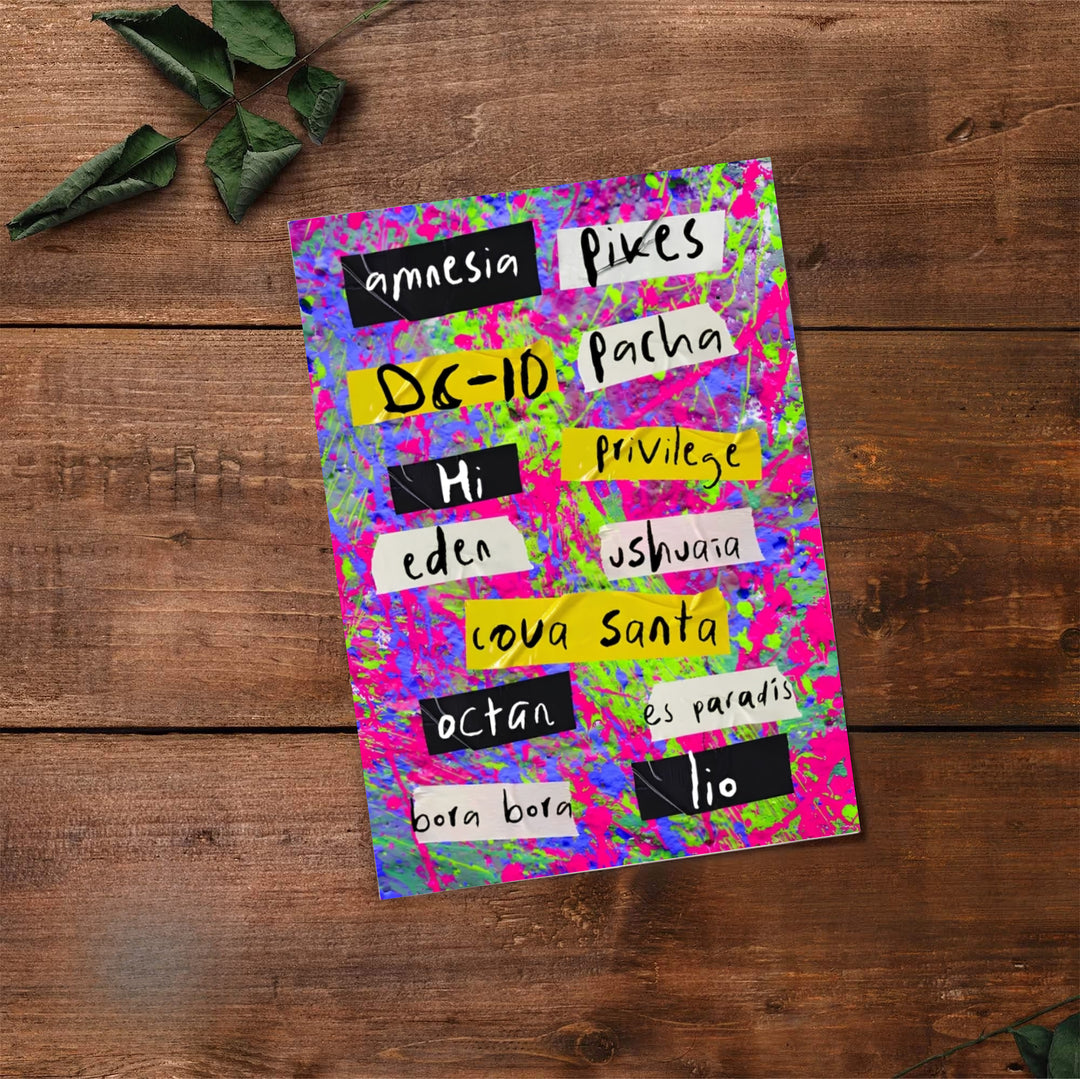 amnesia
pikes
DC-10
pacha
privilege
Hi
eden
ushuaia
cova santa
octan
es paradis
lio
bora bora